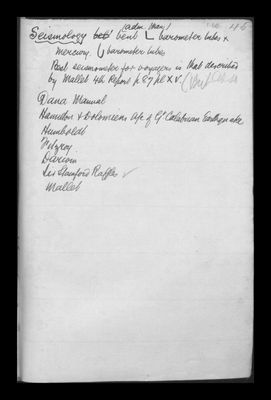 (adm. Man.)
Seismology bent barometer tubes &
Mercury. barometer tubes
Best seismometer for voyagers is that described
by Mallet 4th Report p 87 pl XV.
Dana Manual
Hamilton & Dolomieu's a/c of Gt Calabrian Earthquake
Humboldt
Fitzroy.
Darwin
Sir Stamford Raffles ✓
Mallet